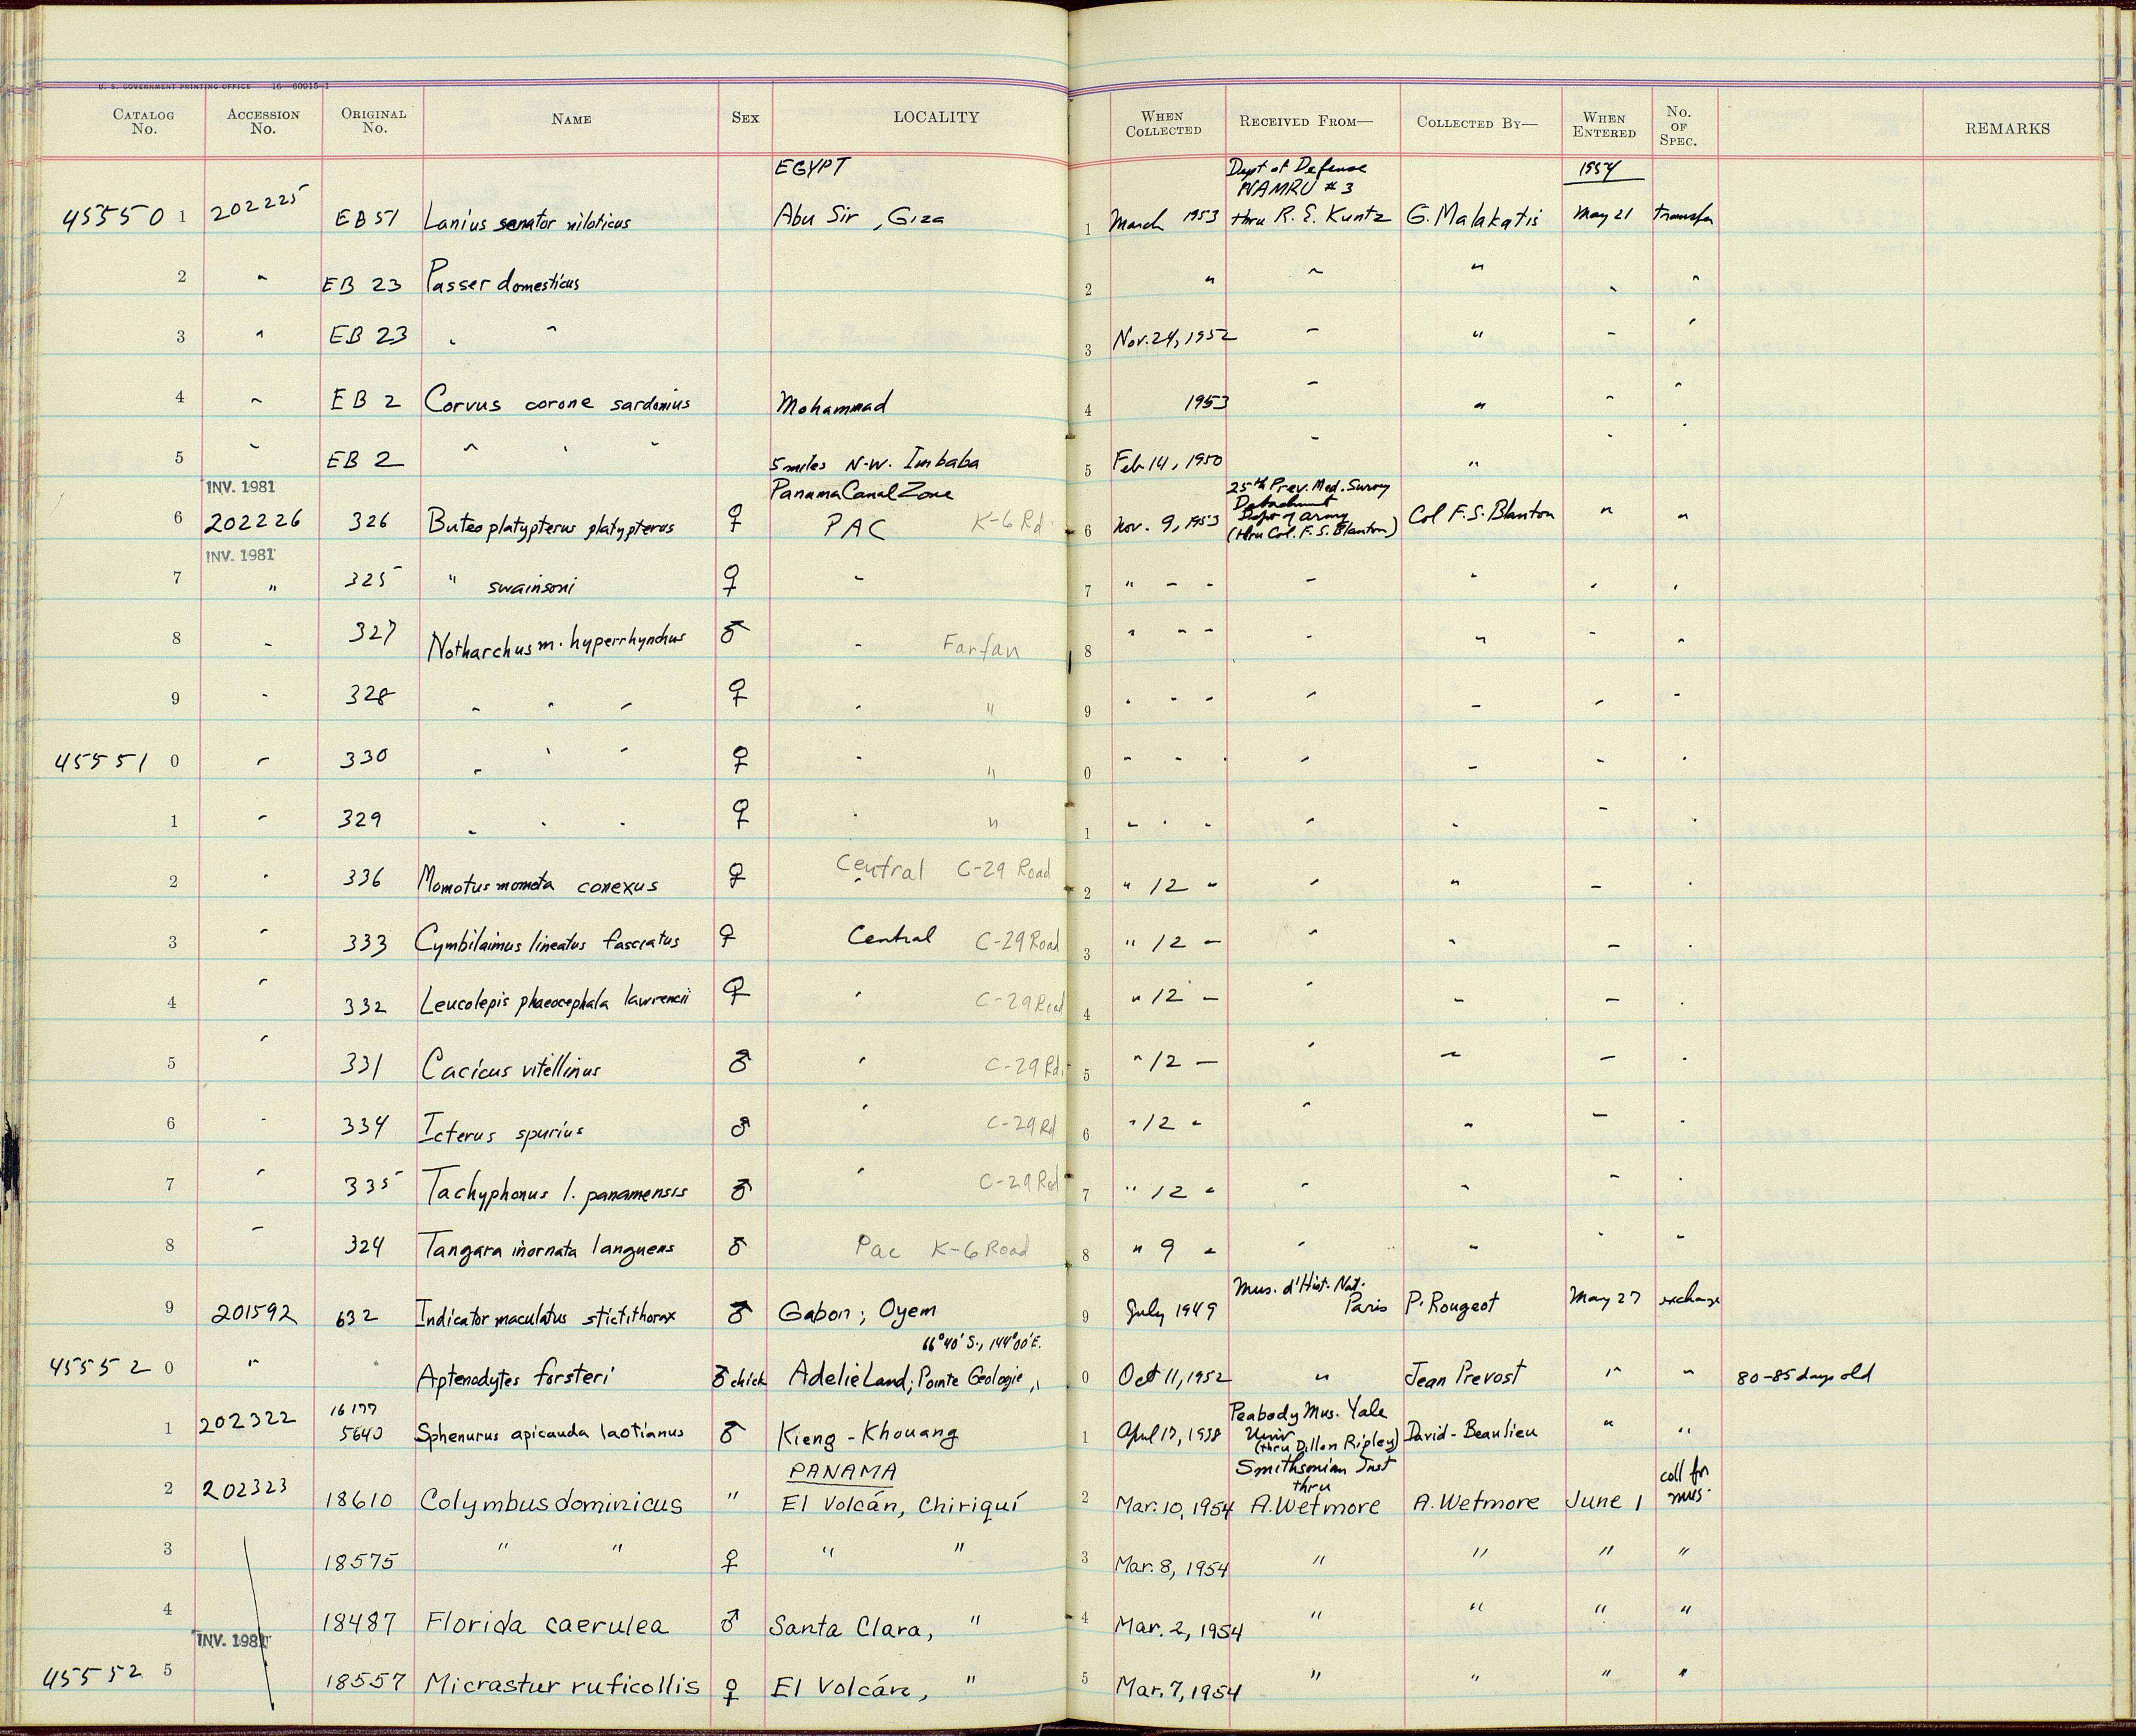 U. S. GOVERNMENT PRINTING OFFICE 16—60915-1
CATALOG No. ACCESSION No. ORIGINAL No. NAME SEX LOCALITY WHEN COLLECTED RECEIVED FROM— COLLECTED BY— WHEN ENTERED No. OF SPEC. REMARKS
EGYPT Dept of Defense NAMRU #3 1954
45550 1 202225 EB 51 Lanius senator niloticus Abu Sir, Giza 1 March 1953 thru R. E. Kuntz G. Malakatis May 21 transfer
2 " EB 23 Passer domesticus 2 " " " " "
3 " EB 23 " " 3 Nov. 24, 1952 " " " "
4 " EB 2 Corvus corone sardonius Mohammad 4 1953 " " " "
5 " EB 2 " " " 5 miles N.W. Imbaba 5 Feb 14, 1950 " " " "
INV. 1981 Panama Canal Zone 25th Prev. Med. Survey Detachment
6 202226 326 Buteo platypterus platypterus ♀ PAC K-6 Rd 6 Nov. 9, 1953 Dept of Army (thru Col. F. S. Blanton) Col F. S. Blanton " "
INV. 1981
7 " 325 " swainsoni ♀ " 7 " " " " " " "
8 " 327 Notharchus m. hyperrhynchus ♂ " Farfan 8 " " " " " " "
9 " 328 " " " ♀ " " 9 " " " " " " "
45551 0 " 330 " " " ♀ " " 0 " " " " " " "
1 " 329 " " " ♀ " " 1 " " " " " " "
2 " 336 Momotus momota conexus ♀ Central C-29 Road 2 " 12 " " " " "
3 " 333 Cymbilaimus lineatus fasciatus ♀ Central C-29 Road 3 " 12 " " " " "
4 " 332 Leucolepis phaeocephala lawrencii ♀ " C-29 Road 4 " 12 " " " " "
5 " 331 Cacicus vitellinus ♂ " C-29 Rd. 5 " 12 " " " " "
6 " 334 Icterus spurius ♂ " C-29 Rd 6 " 12 " " " " "
7 " 335 Tachyphonus l. panamensis ♂ " C-29 Rd 7 " 12 " " " " "
8 " 324 Tangara inornata languens ♂ Pac K-6 Road 8 " 9 " " " " "
9 201592 632 Indicator maculatus stictithorax ♂ Gabon; Oyem 9 July 1949 Mus. d'Hist. Nat. Paris P. Rougeot May 27 exchange
66°40' S., 144°00' E.
45552 0 " Aptenodytes forsteri ♂ chick Adelie Land; Pointe Geologie, 0 Oct 11, 1952 " Jean Prevost " " 80-85 days old
16177
1 202322 5640 Sphenurus apicauda laotianus ♂ Kieng-Khouang 1 April 17, 1938 Peabody Mus. Yale Univ (thru Dillon Ripley) David-Beaulieu " "
PANAMA Smithsonian Inst thru
2 202323 18610 Colymbus dominicus " El Volcán, Chiriquí 2 Mar. 10, 1954 A. Wetmore A. Wetmore June 1 coll for mus.
3 18575 " " ♀ " " 3 Mar. 8, 1954 " " " "
4 18487 Florida caerulea ♂ Santa Clara, " 4 Mar. 2, 1954 " " " "
INV. 1981
45552 5 18557 Micrastur ruficollis ♀ El Volcán, " 5 Mar. 7, 1954 " " " "